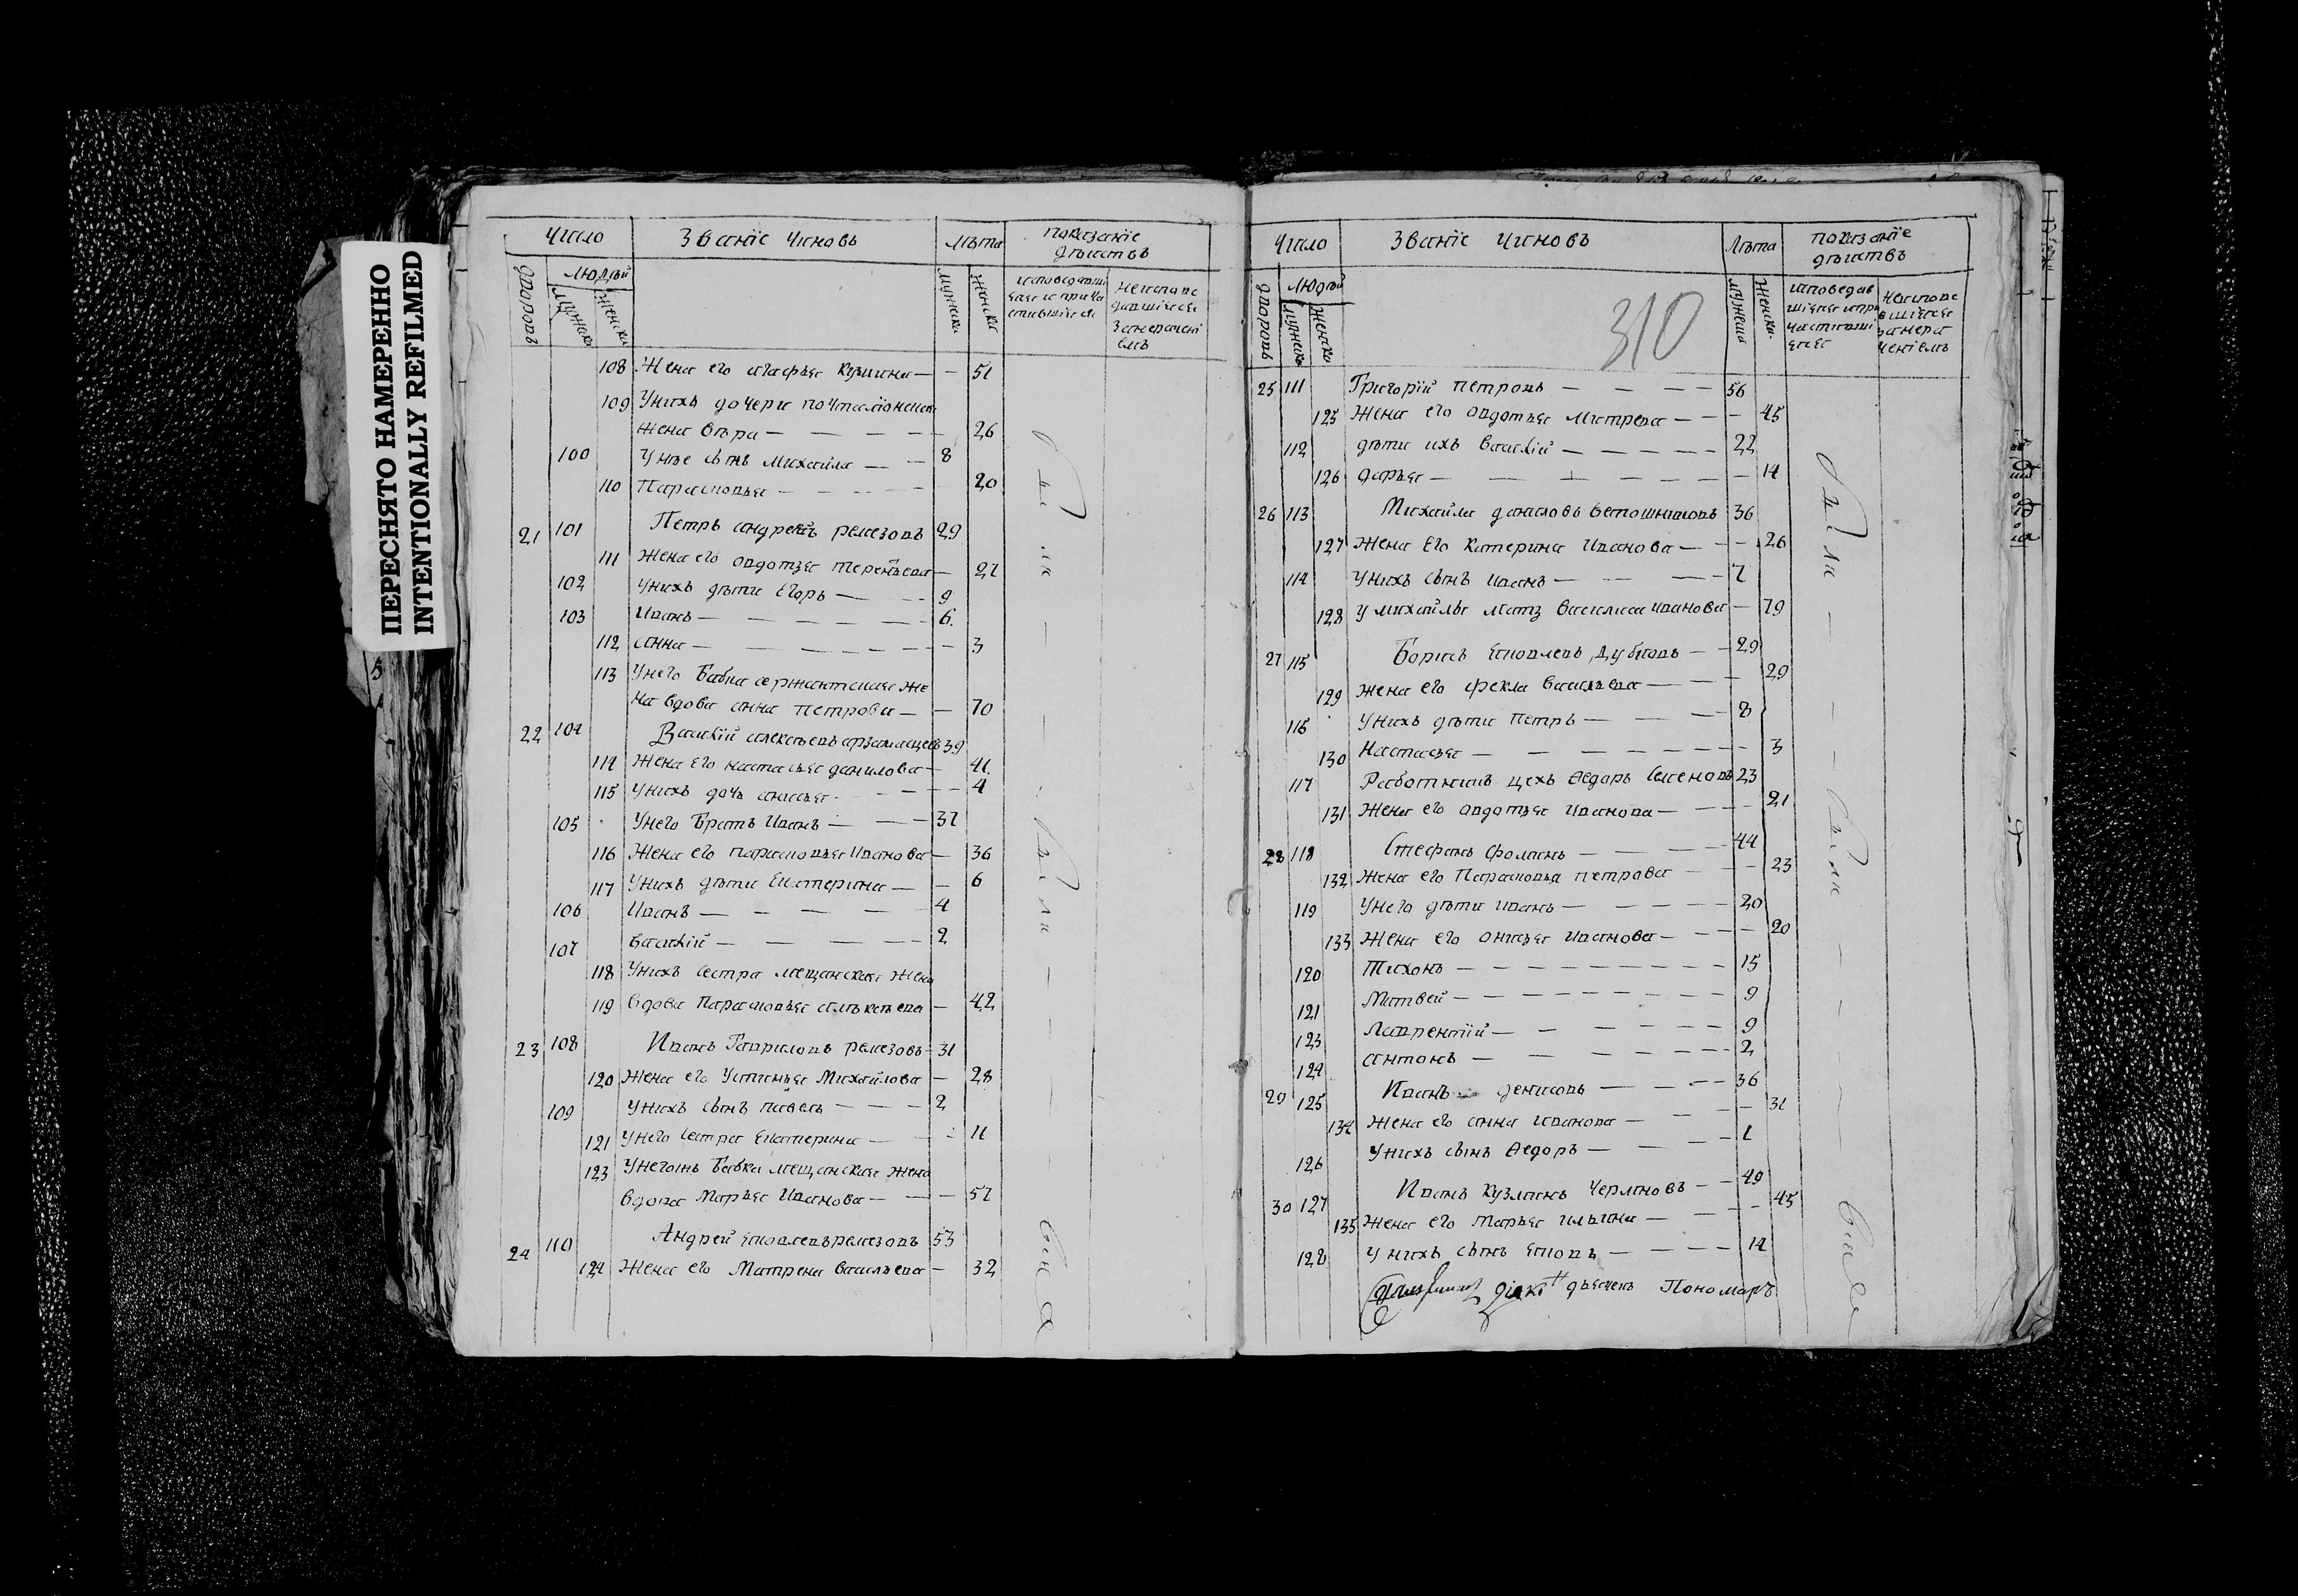 ПЕРЕСНЯТО НАМЕРЕННО
INTENTIONALLY REFILMED
Число Званїе чиновъ Лѣта показанїе дѣиствъ
дворовъ людѣй мужеска женска мужеска женска исповедавшиеся и причастившїися неисповедавшїися за нерачениемъ
108 Жена его агафья Кузмина — — 51
109 Унихъ дочери почталїонская
жена вѣра — — — — 26
100 Унее сынъ михайла — — 8
110 Парасковья — — — — 20
21 101 Петръ андреевъ ремезовъ 29
111 Жена его авдотья терентьева — 27
102 Унихъ дѣти Егоръ — — 9
103 Иванъ — — — — — 6.
112 анна — — — — — — 3
113 Унего бабка сержантская же
на вдова анна петрова — — 70
22 104 Василїй алексѣевъ арзамасцевъ 39
114 Жена его настасья данилова — 41.
115 Унихъ дочь анисья — — — — 4
105 Унего братъ Иванъ — — — 37
116 Жена его парасковья Иванова — 36
117 Унихъ дѣти Екатерина — — 6
106 Иванъ — — — — — 4
107 Василїй — — — — — 2
118 Унихъ сестра мещанская жена
119 вдова Парасковья алѣксѣева — 42
23 108 Иванъ Гавриловъ ремезовъ — 31
120 Жена его Устинья Михайлова — 28
109 Унихъ сынъ павелъ — — — 2
121 Унего сестра Екатерина — — 11
123 Бабка мещанская жена
вдова Марья Иванова — — — 57
24 110 Андрей яковлевъ ремезовъ 53
124 Жена его Матрена васильева — 32
были — — — были — — — вси
Число Званїе чиновъ Лѣта показанїе дѣиствъ
дворовъ людѣй мужеска женска мужеска женска исповедавшїяся и причастившїяся неисповедавшїяся за нерачениемъ
310
25 111 Григорїй петровъ — — — — 56
125 Жена его авдотья митрева — — — 45
112 дѣти ихъ василїй — — — — — 22
126 дарья — — — — — — — 14
26 113 Михайла даниловъ ветошниковъ 36
127 Жена Его Катерина Иванова — — — 26
114 Унихъ сынъ иванъ — — — — 7
128 у михайлы мать василиса иванова — 79
27 115 Борисъ яковлевъ дубковъ — — 29
129 жена его фекла васильева — — — 29
116 Унихъ дѣти петръ — — — — 8
130 Настасья — — — — — — — 3
117 Работникъ цехъ Ѳедоръ семеновъ 23
131 Жена его авдотья иванова — — — 21
28 118 Стефанъ фоминъ — — — — 44
132 Жена его Парасковья петрова — — — 23
119 Унего дѣти иванъ — — — — — 20
133 Жена его анисья иванова — — — — 20
120 Тихонъ — — — — — — — — 15
121 Матвей — — — — — — — — 9
123 Лаврентїй — — — — — — 9
124 антонъ — — — — — — 2
29 125 Иванъ денисовъ — — — — 36
134 Жена его анна иванова — — — — 31
126 Унихъ сынъ Ѳедоръ — — — — 1
30 127 Иванъ Кузминъ Чермновъ — — 49
135 Жена его марья ильина — — — — 45
128 Унихъ сынъ яковъ — — — — 14
были — — — были — — — вси
дьячекъ Пономарь